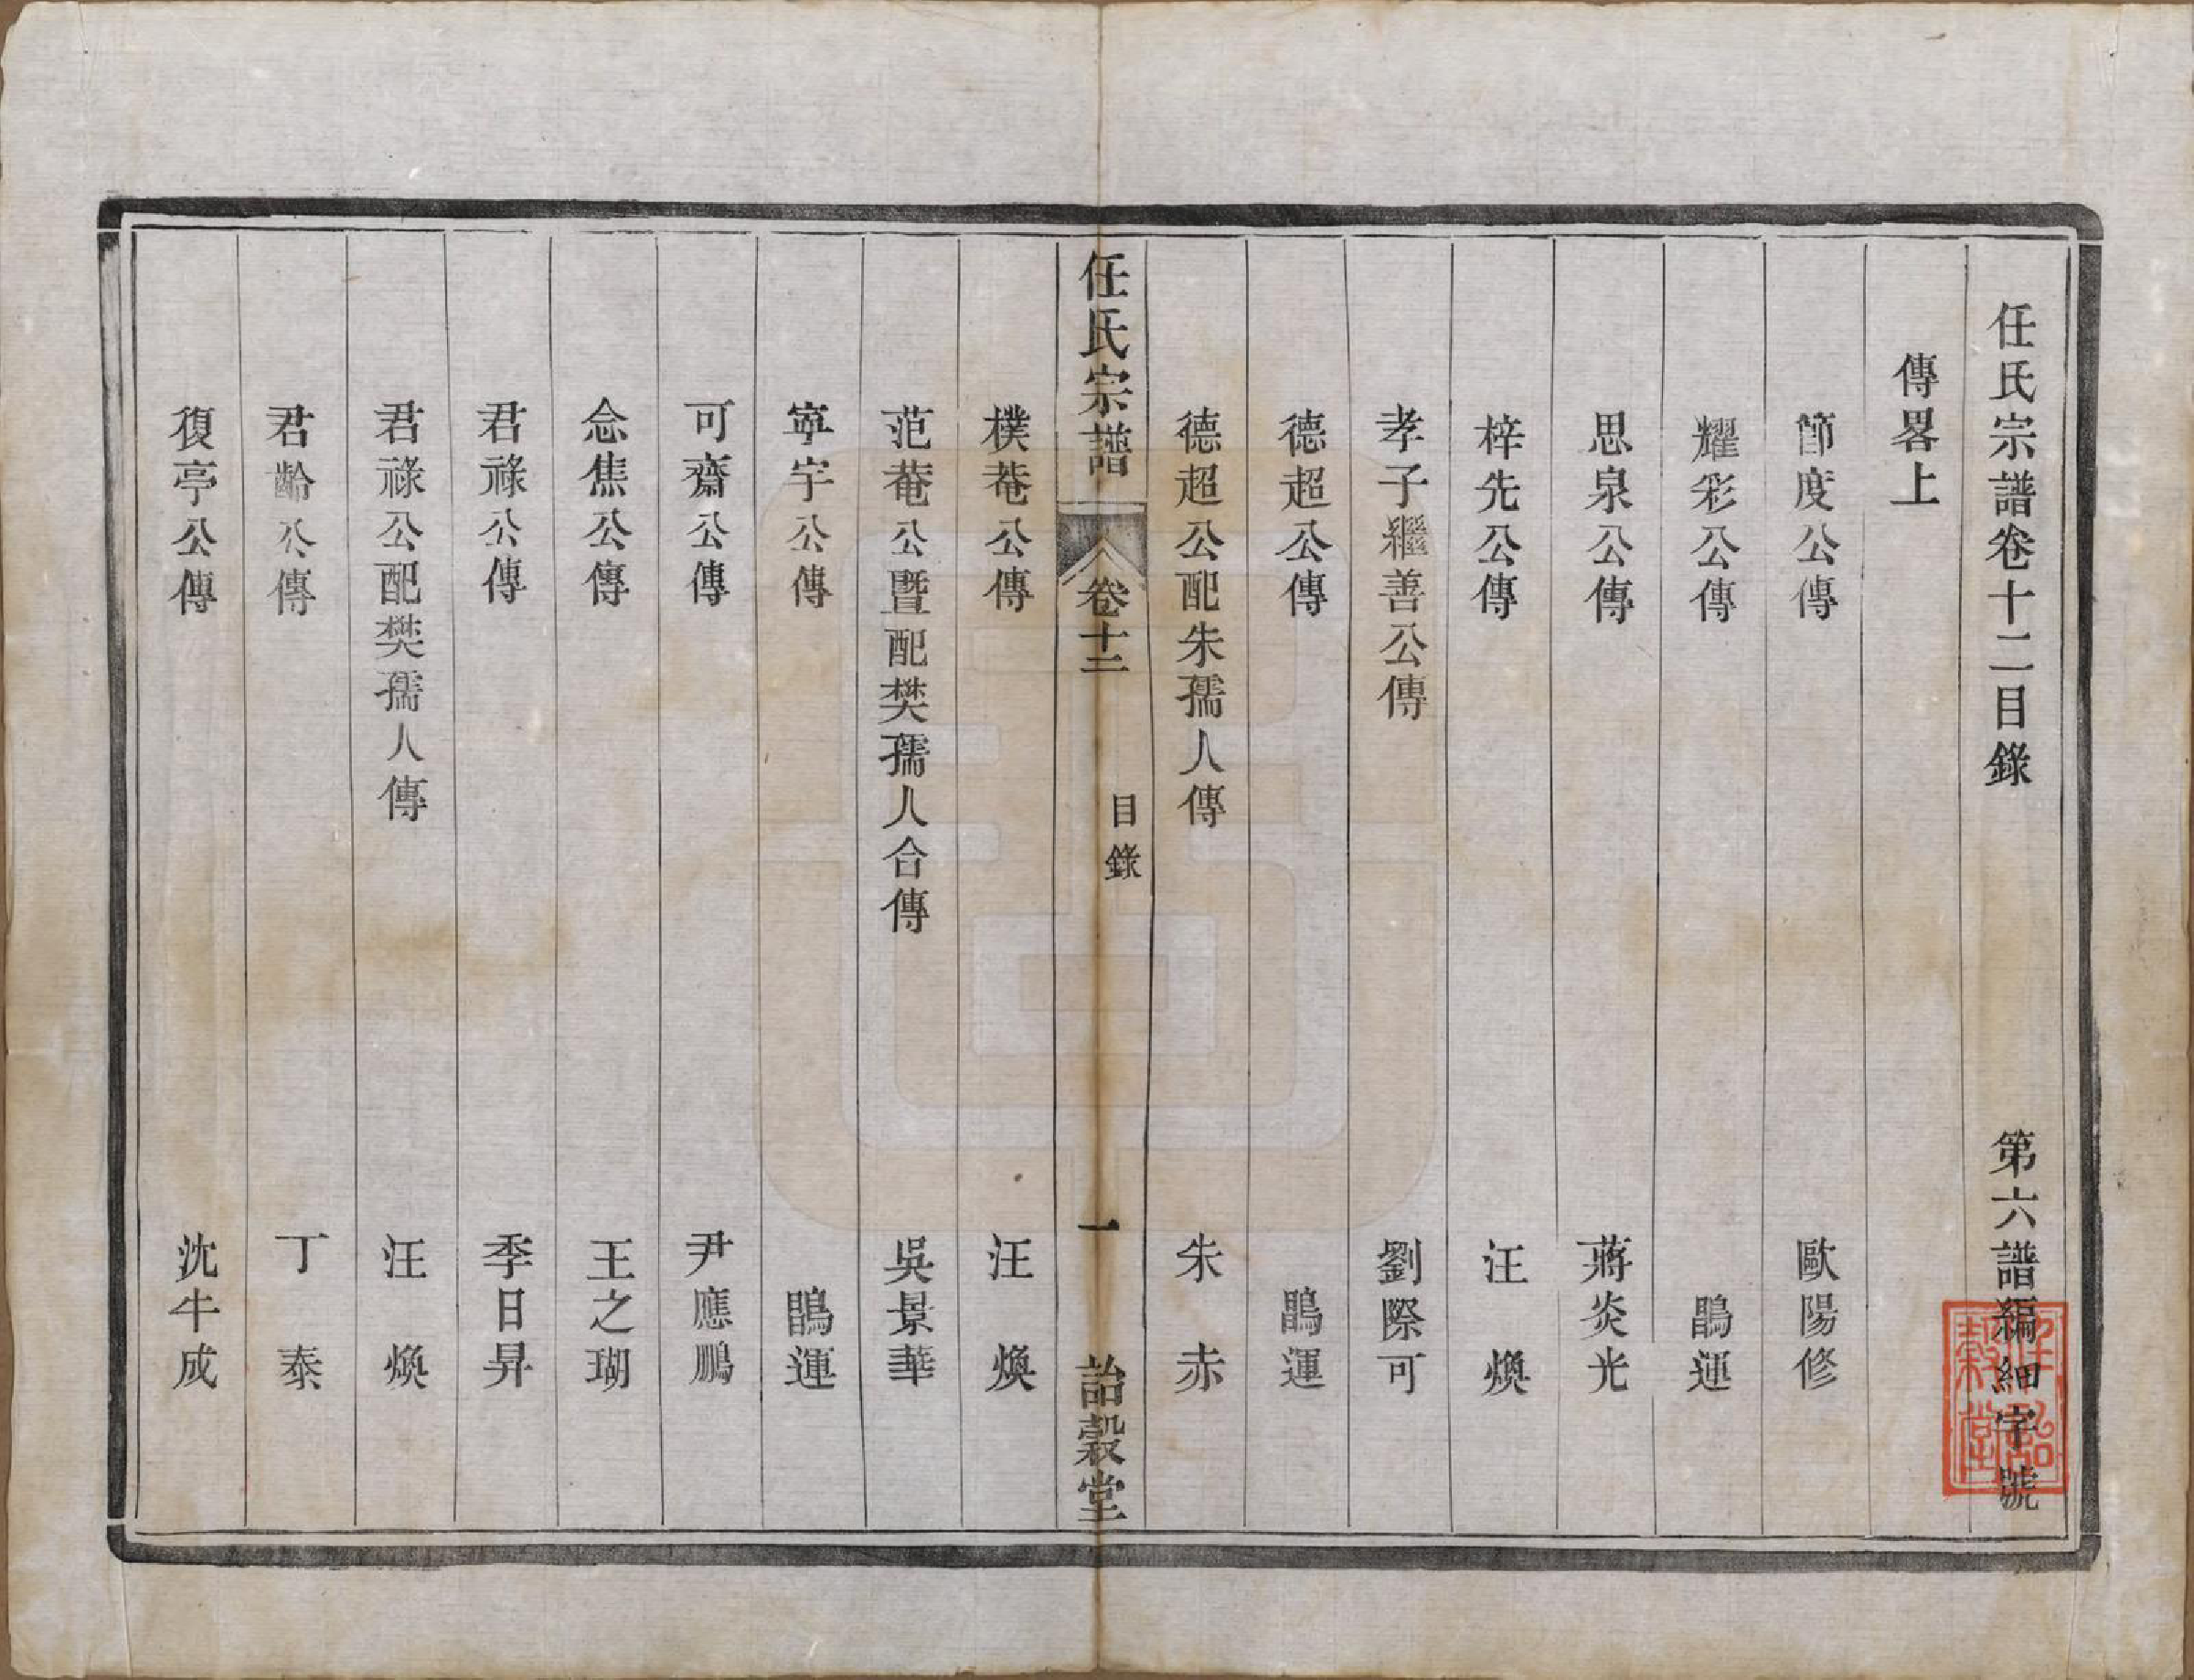 任氏宗譜卷十二目錄 第六譜編細字號
傳畧上
節度公傳 歐陽修
耀彩公傳 鵾運
思泉公傳 蔣炎光
梓先公傳 汪煥
孝子繼善公傳 劉際可
德超公傳 鵾運
德超公配朱孺人傳 朱赤
任氏宗譜 卷十二 目錄 一 詒穀堂
樸菴公傳 汪煥
范菴公暨配樊孺人合傳 吳景華
寧宇公傳 鵾運
可齋公傳 尹應鵬
念焦公傳 王之瑚
君祿公傳 季日昇
君祿公配樊孺人傳 汪煥
君齡公傳 丁泰
復亭公傳 沈牛成